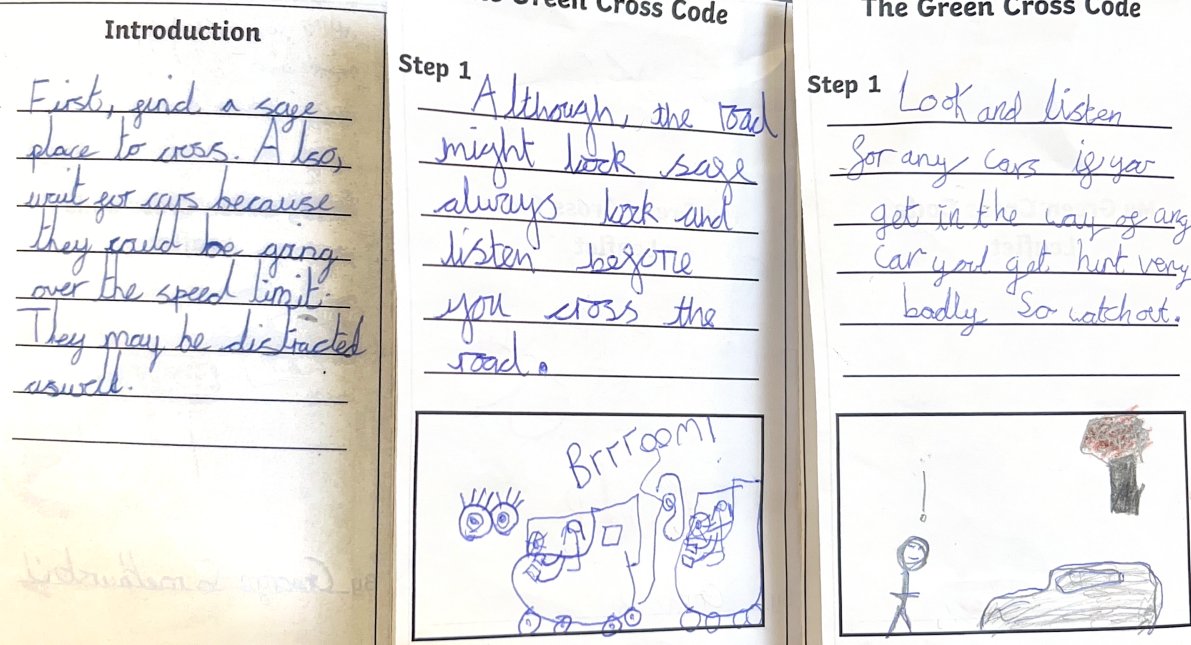 Introduction
First, find a safe
place to cross. Also,
wait for cars because
they could be going
over the speed limit.
They may be distracted
aswell.
Green Cross Code
Step 1
Although, the road
might look safe
always look and
listen before
you cross the
road.
Brrroom!
The Green Cross Code
Step 1
Look and listen
for any cars if you
get in the way of any
car you get hurt very
badly So watch out.
!